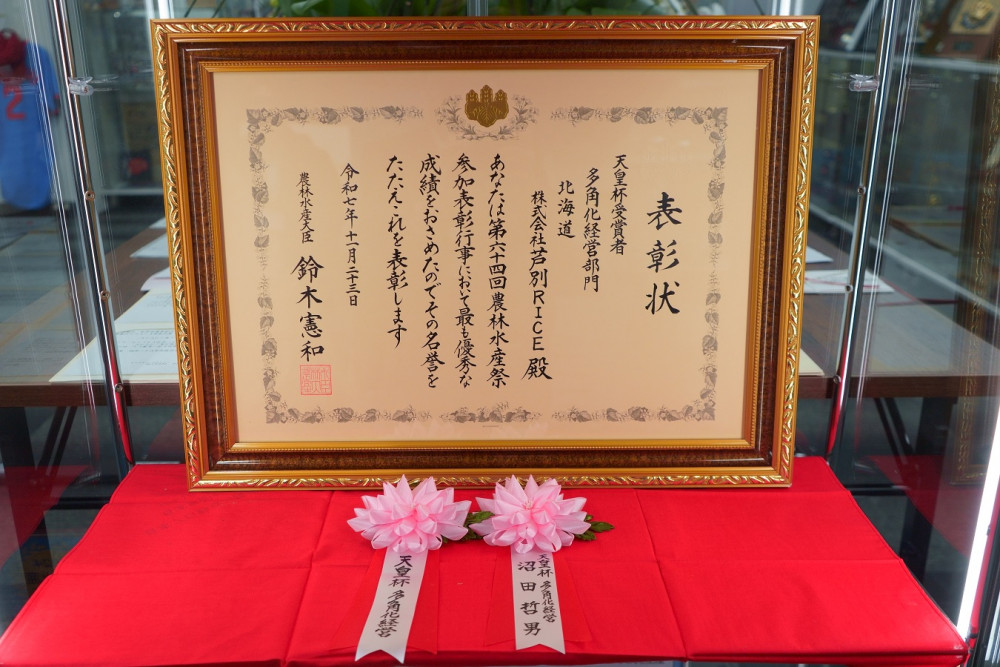 表彰状
天皇杯受賞者
多角化経営部門
北海道
株式会社芦別RICE 殿
あなたは第六十四回農林水産祭
参加表彰行事において最も優秀な
成績をおさめたのでその名誉を
たたえこれを表彰します
令和七年十一月二十三日
農林水産大臣 鈴木憲和
天皇杯 多角化経営
天皇杯 多角化経営
沼田哲男